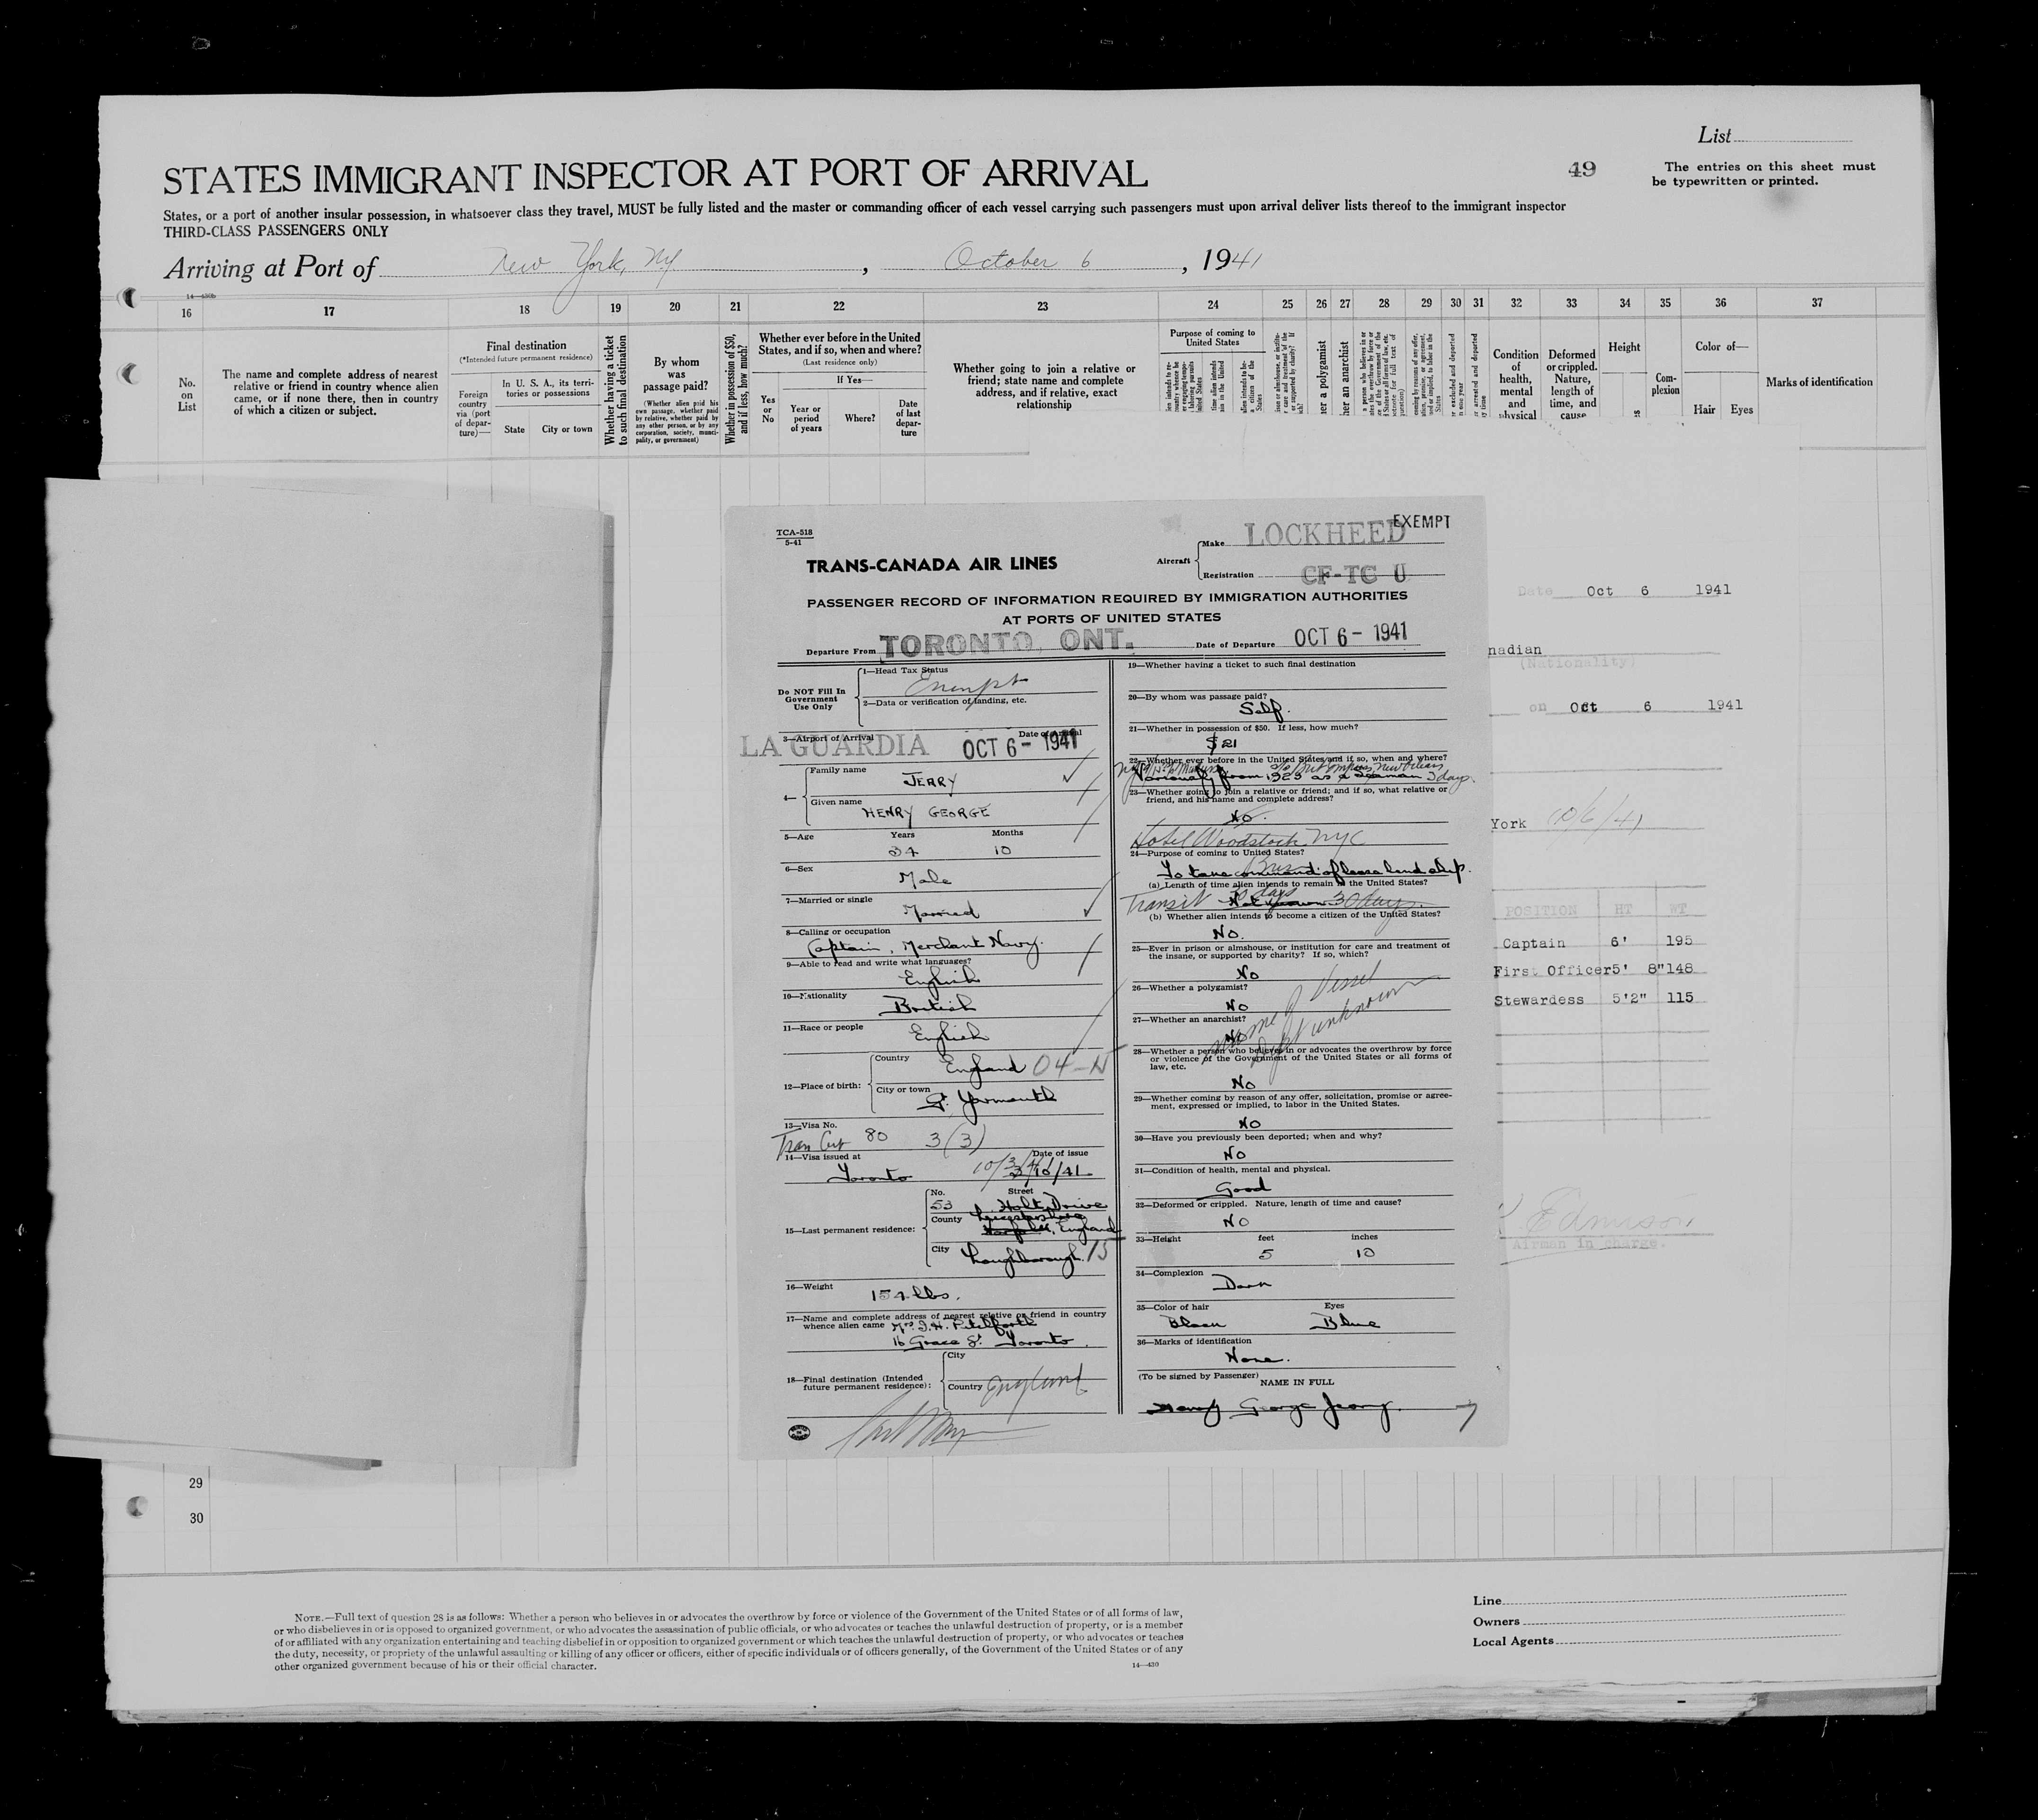 List
STATES IMMIGRANT INSPECTOR AT PORT OF ARRIVAL
49
The entries on this sheet must
be typewritten or printed.
States, or a port of another insular possession, in whatsoever class they travel, MUST be fully listed and the master or commanding officer of each vessel carrying such passengers must upon arrival deliver lists thereof to the immigrant inspector
THIRD-CLASS PASSENGERS ONLY
Arriving at Port of New York, NY, October 6, 1941
14—430b
16 17 18 19 20 21 22 23 24 25 26 27 28 29 30 31 32 33 34 35 36 37
No.
on
List
The name and complete address of nearest
relative or friend in country whence alien
came, or if none there, then in country
of which a citizen or subject.
Final destination
(*Intended future permanent residence)
Foreign
country
via (port
of depar-
ture)—
In U. S. A., its terri-
tories or possessions
State City or town
Whether having a ticket
to such final destination
By whom
was
passage paid?
(Whether alien paid his
own passage, whether paid
by relative, whether paid by
any other person, or by any
corporation, society, munici-
pality, or government)
Whether in possession of $50,
and if less, how much?
Whether ever before in the United
States, and if so, when and where?
(Last residence only)
If Yes—
Yes
or
No
Year or
period
of years
Where?
Date
of last
depar-
ture
Whether going to join a relative or
friend; state name and complete
address, and if relative, exact
relationship
Purpose of coming to
United States
her a polygamist
her an anarchist
Condition
of
health,
mental
and
physical
Deformed
or crippled.
Nature,
length of
time, and
cause
Height
Com-
plexion
Color of—
Hair Eyes
Marks of identification
TCA-518
5-41
TRANS-CANADA AIR LINES
Aircraft
Make LOCKHEED
EXEMPT
Registration CF-TC U
PASSENGER RECORD OF INFORMATION REQUIRED BY IMMIGRATION AUTHORITIES
AT PORTS OF UNITED STATES
Departure From TORONTO, ONT. Date of Departure OCT 6 - 1941
Do NOT Fill In
Government
Use Only
1—Head Tax Status
Exempt
2—Data or verification of landing, etc.
3—Airport of Arrival Date of Arrival
LA GUARDIA OCT 6 - 1941
4—
Family name
JERRY
Given name
HENRY GEORGE
5—Age Years Months
34 10
6—Sex
Male
7—Married or single
Married
8—Calling or occupation
Captain, Merchant Navy.
9—Able to read and write what languages?
English
10—Nationality
British
11—Race or people
English
12—Place of birth:
Country
England 04-N
City or town
Gt. Yarmouth
13—Visa No.
Tran Cert 80 3(3)
14—Visa issued at Date of issue
Toronto 10/3/41 3/10/41
15—Last permanent residence:
No. Street
53 Holt Drive
County Leicestershire
England
City Loughborough 15
16—Weight
154 lbs.
17—Name and complete address of nearest relative or friend in country
whence alien came
16 Grace St. Toronto.
18—Final destination (Intended
future permanent residence):
City
Country England
19—Whether having a ticket to such final destination
20—By whom was passage paid?
Self.
21—Whether in possession of $50. If less, how much?
$21
22—Whether ever before in the United States and if so, when and where?
from 1923 as a Seaman 3 days.
New Orleans
23—Whether going to join a relative or friend; and if so, what relative or
friend, and his name and complete address?
No.
Hotel Woodstock NYC
24—Purpose of coming to United States?
Bus
To take command of lease lend ship.
(a) Length of time alien intends to remain in the United States?
Transit 30 days.
(b) Whether alien intends to become a citizen of the United States?
No.
25—Ever in prison or almshouse, or institution for care and treatment of
the insane, or supported by charity? If so, which?
No
26—Whether a polygamist?
No
27—Whether an anarchist?
No
name of vessel
Dept unknown
28—Whether a person who believes in or advocates the overthrow by force
or violence of the Government of the United States or all forms of
law, etc.
No
29—Whether coming by reason of any offer, solicitation, promise or agree-
ment, expressed or implied, to labor in the United States.
No
30—Have you previously been deported; when and why?
No
31—Condition of health, mental and physical.
Good
32—Deformed or crippled. Nature, length of time and cause?
No
33—Height feet inches
5 10
34—Complexion
Dark
35—Color of hair Eyes
Black Blue
36—Marks of identification
None.
(To be signed by Passenger)
NAME IN FULL
Henry George Jerry.
Date Oct 6 1941
nadian
(Nationality)
on Oct 6 1941
York 10/6/41
POSITION HT WT
Captain 6' 195
First Officer 5' 8" 148
Stewardess 5'2" 115
Edmison
Airman in charge.
29
30
NOTE.—Full text of question 28 is as follows: Whether a person who believes in or advocates the overthrow by force or violence of the Government of the United States or of all forms of law,
or who disbelieves in or is opposed to organized government, or who advocates the assassination of public officials, or who advocates or teaches the unlawful destruction of property, or is a member
of or affiliated with any organization entertaining and teaching disbelief in or opposition to organized government or which teaches the unlawful destruction of property, or who advocates or teaches
the duty, necessity, or propriety of the unlawful assaulting or killing of any officer or officers, either of specific individuals or of officers generally, of the Government of the United States or of any
other organized government because of his or their official character.
14—430
Line
Owners
Local Agents